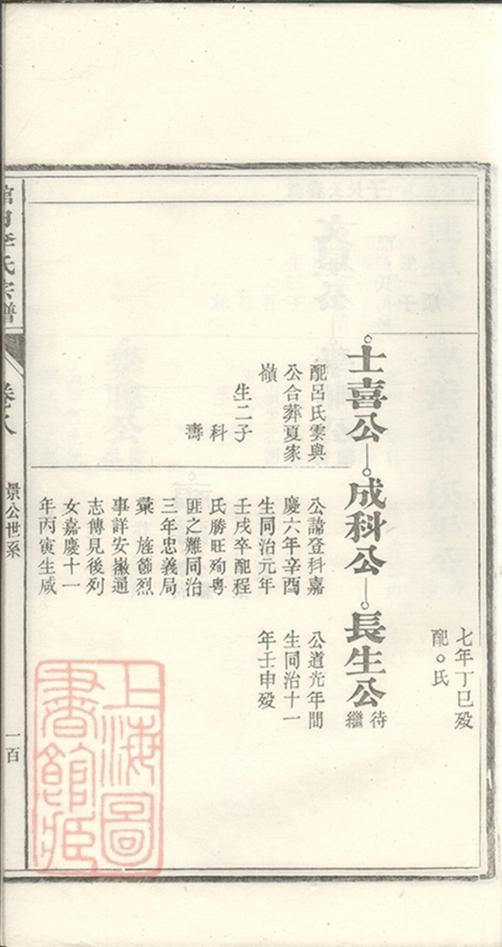 七年丁巳殁
配○氏
士喜公
成科公
長生公
待繼
配呂氏雲與
公合葬夏家
嶺
生二子
科
壽
公諱登科嘉
慶六年辛酉
生同治元年
壬戌卒配程
氏勝旺殉粵
匪之難同治
三年忠義局
彙 旌節烈
事詳安徽通
志傳見後列
女嘉慶十一
年丙寅生咸
公道光年間
生同治十一
年壬申殁
李氏宗譜
卷八
景公世系
一百
上海圖
書館藏